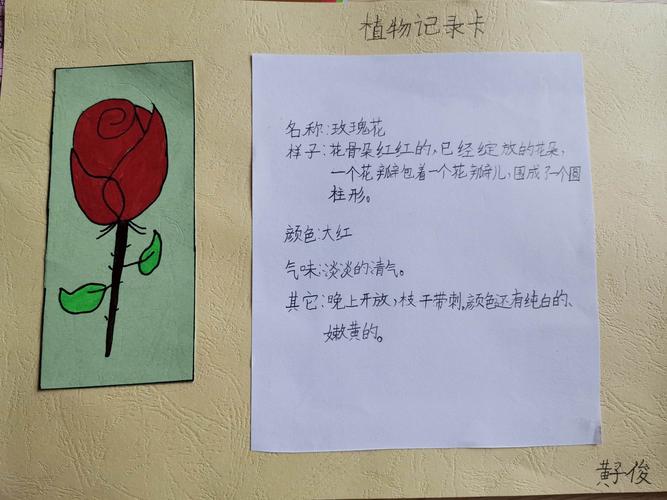 植物记录卡
名称:玫瑰花
样子:花骨朵红红的,已经绽放的花朵,
一个花瓣包着一个花瓣儿,围成了一个圆
柱形。
颜色:大红
气味:淡淡的清气。
其它:晚上开放,枝干带刺。颜色还有纯白的、
嫩黄的。
黄子俊